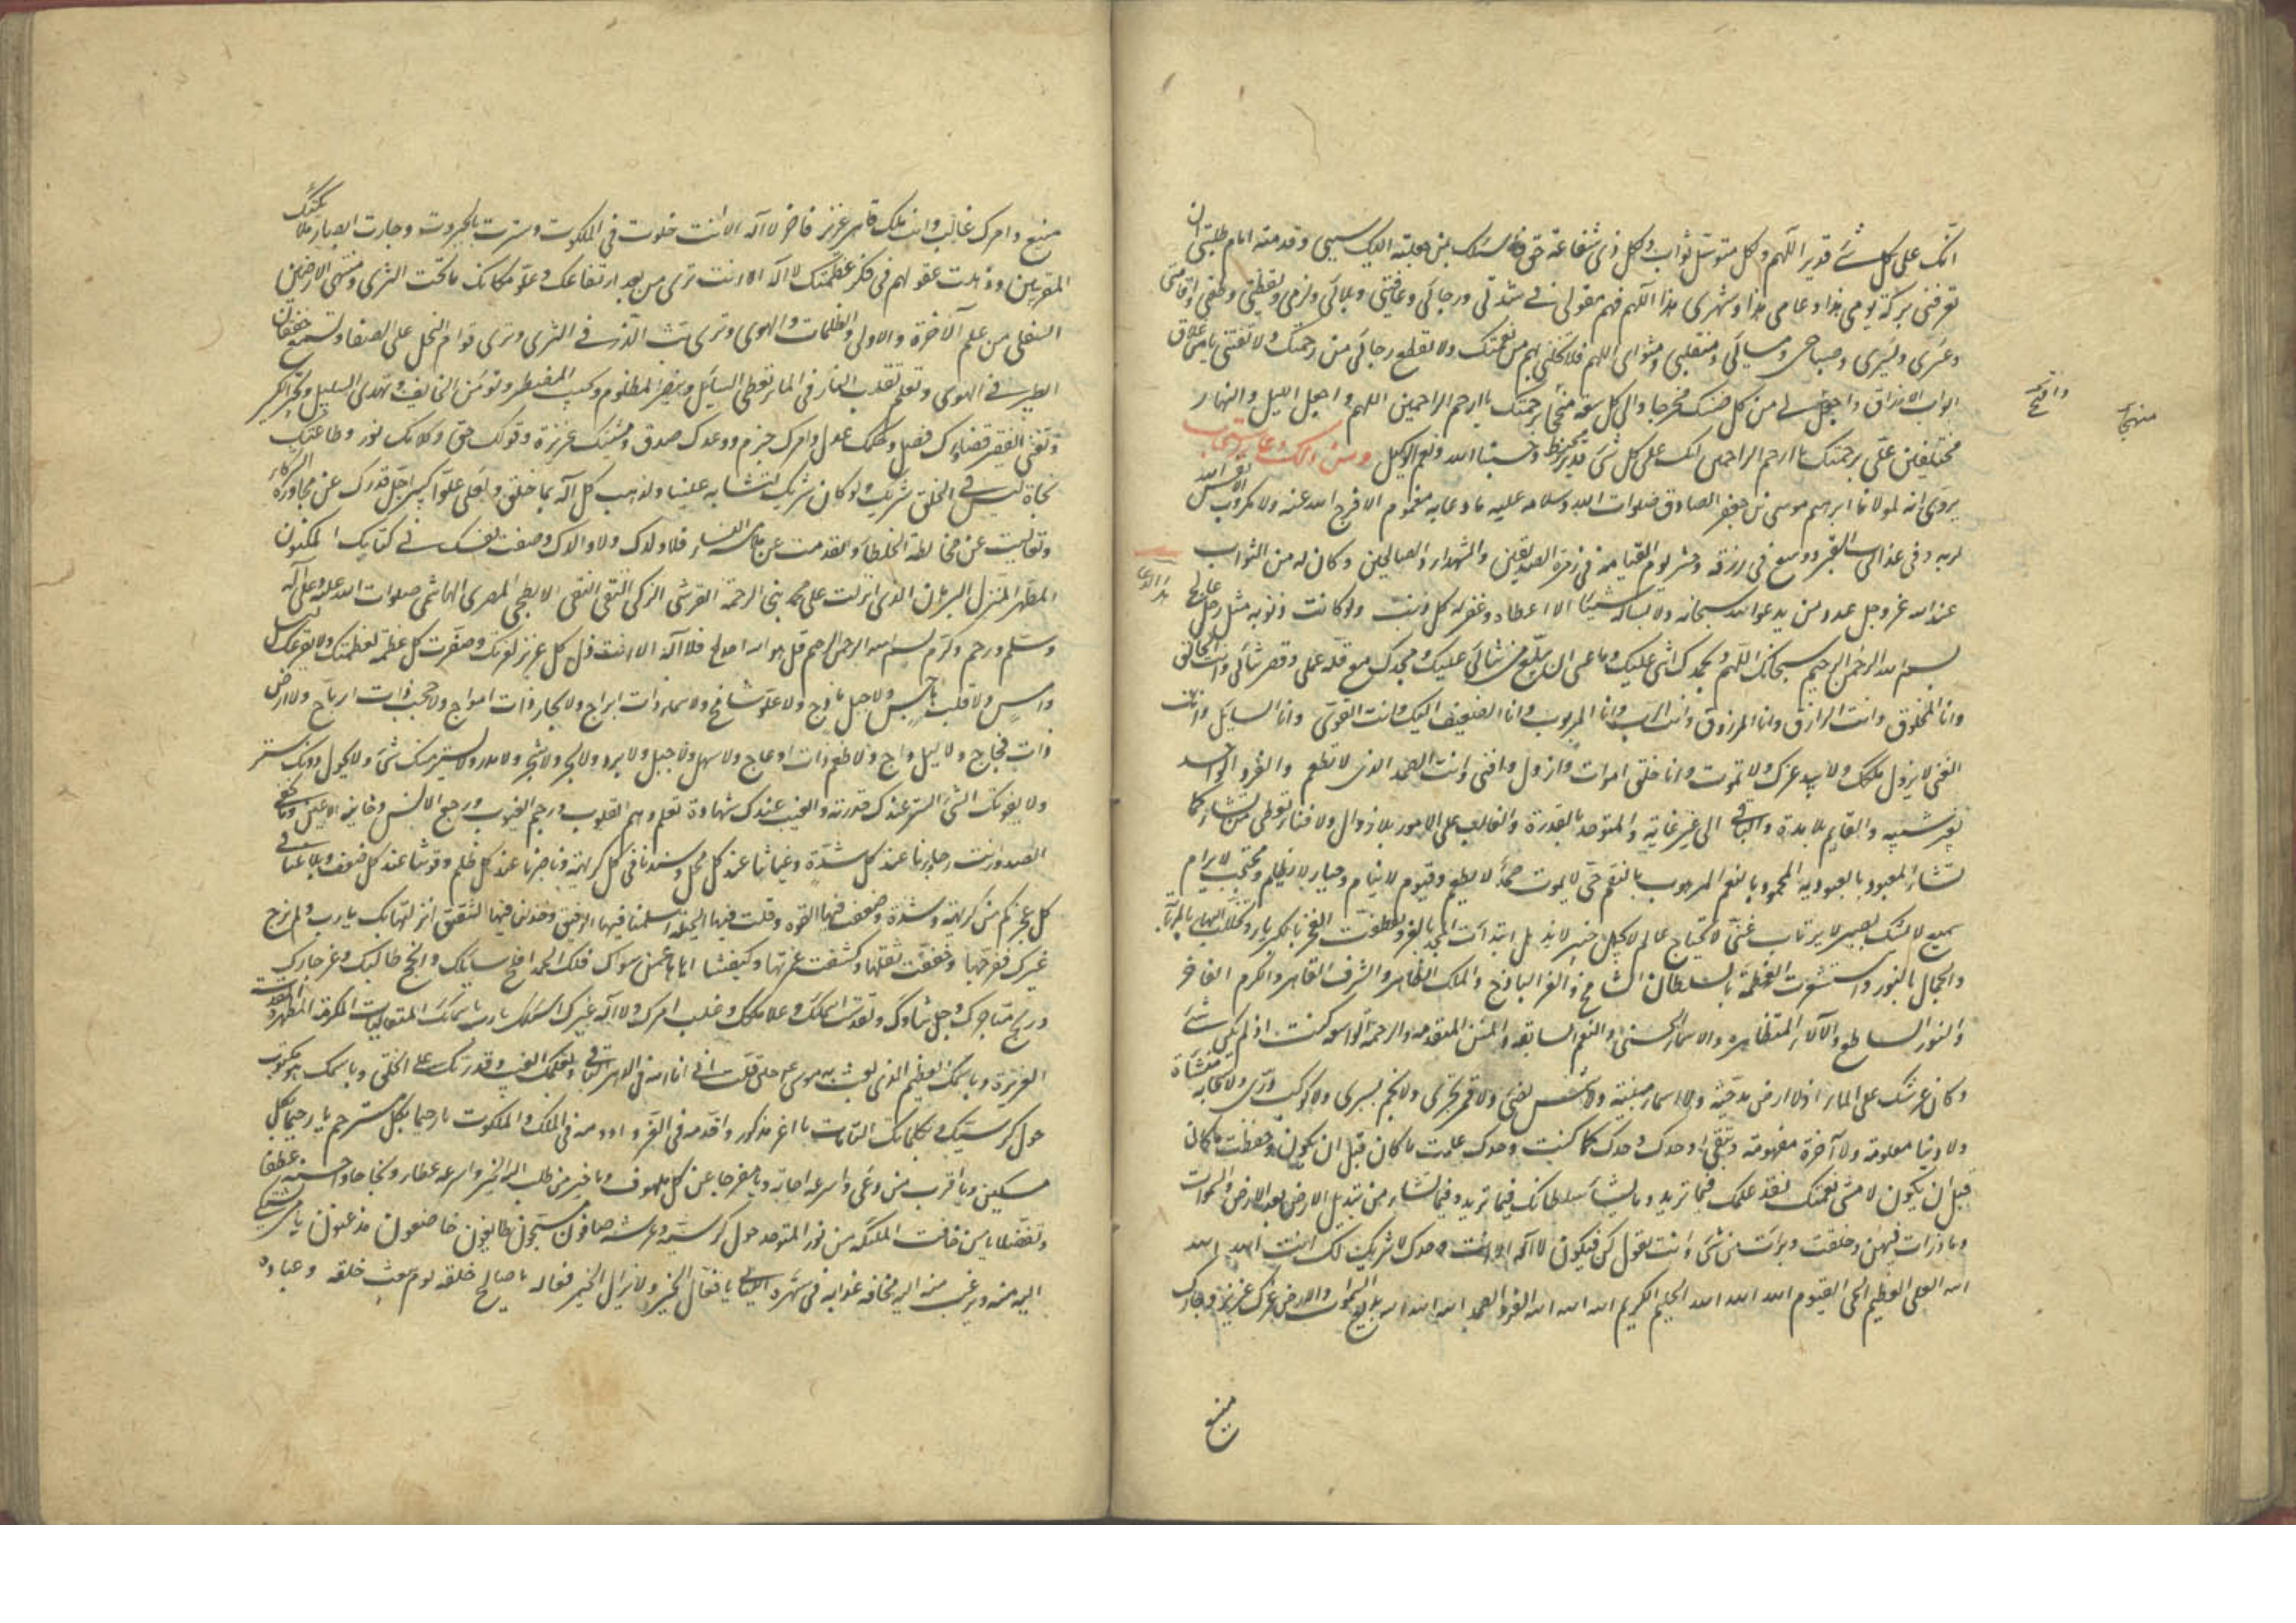 انك على كل شئ قدير اللهم وكل متوسل ثواب ولكل ذي شفاعة حق فاسئلك بمن جعلته اليك سببي وقدمته امام طلبتي ان
تعرفني بركة يومي هذا وعامي هذا وشهري هذا اللهم فهم معولي في شدتي ورخائي وعافيتي وبلائي ونومي ويقظتي وظعني واقامتي
وعسري ويسري وصباحي ومسائي ومنقلبي ومثواي اللهم فلا تخلني بهم من نعمتك ولا تقطع رجائي من رحمتك ولا تفتني باغلاق
ابواب الارزاق واجعل لي من كل ضنك مخرجا والى كل سعة منهجا برحمتك يا ارحم الراحمين اللهم واجعل الليل والنهار
وافتح
منهجا
مختلفين علي برحمتك يا ارحم الراحمين انك على كل شئ قدير وحسبنا الله ونعم الوكيل ومن ذلك دعاء
يروى انه لمولانا ابرهيم موسى بن جعفر الصادق صلوات الله وسلامه عليه ما دعا به مغموم الا فرج الله عنه ولا مكروب الا نفس الله
كربه وفي عذاب القبر ووسع في رزقه وحشر يوم القيامة في زمرة الصديقين والشهداء والصالحين وكان له من الثواب
عند الله عز وجل عدد من يدعو الله سبحانه ولا يسأله شيئا الا اعطاه وغفر له كل ذنب ولو كانت ذنوبه مثل رمل عالج
هذا الدعا
بسم الله الرحمن الرحيم سبحانك اللهم وبحمدك اثني عليك وما عسى ان يبلغ من ثنائي عليك ومجدك مع قلة عملي وقصر ثنائي وانت الخالق
وانا المخلوق وانت الرازق وانا المرزوق وانت الرب وانا المربوب وانا الضعيف اليك وانت القوي وانا السائل وانت
الغني لا يزول ملكك ولا يبيد عزك ولا تموت وانا خلق اموت وازول وافنى وانت الصمد الذي لا تطعم والفرد الواحد
بغير شبيه والقايم بلا مدة والباقي الى غير غاية والمتوحد بالقدرة والغالب على الامور بلا زوال ولا فناء تعطي من تشاء كما
تشاء المعبود بالعبودية المحمود بالنعم المرهوب بالنقم حي لا يموت صمد لا يطعم وقيوم لا ينام وجبار لا يظلم ومحتجب لا يرام
سميع لا يشك بصير لا يرتاب غني لا يحتاج عالم لا يجهل خبير لا يذهل ابتدأت المجد بالعز وتعطفت الفخر بالكبرياء وتجللت البهاء بالمهابة
والجمال بالنور واستشعرت العظمة بالسلطان الشامخ والعز الباذخ والملك الظاهر والشرف القاهر والكرم الفاخر
والنور الساطع والآلاء المتظاهرة والاسماء الحسنى والنعم السابغة والمنن المتقدمة والرحمة الواسعة كنت اذ لم يكن شئ
وكان عرشك على الماء اذ لا ارض مدحية ولا سماء مبنية ولا شمس تضئ ولا قمر يجري ولا نجم يسري ولا كوكب دري ولا سحابة منشأة
ولا دنيا معلومة ولا آخرة مفهومة وتبقى وحدك وحدك كما كنت وحدك علمت ما كان قبل ان يكون وحفظت ما كان
قبل ان يكون لا منتهى لنعمتك نفذ علمك فيما تريد وما يشاء سلطانك فيما تريد وفيما تشاء من تبديل الارض بعد الارض والسموات
وما ذرات فيهن وخلقت وبرات من شئ وانت تقول كن فيكون لا اله الا انت وحدك لا شريك لك انت الله الله
الله العلي العظيم الحي القيوم الله الله الله الحليم الكريم الله الله الله الفرد الصمد الله الله الله بديع السموات والارض عزك عزيز وجارك
منيع
منيع وامرك غالب وانت ملك قاهر عزيز فاخر لا اله الا انت خلوت في الملكوت وسترت بالجبروت وحارت ابصار ملائكتك
المقربين وذهلت عقولهم في فكر عظمتك لا اله الا انت ترى من بعد ارتفاعك وعلو مكانك ما تحت الثرى ومنتهى الارضين
السفلى من علم الآخرة والاولى والظلمات والهوى وترى بث الذر في الثرى وترى قوام النمل على الصفا وتسمع خفقان
الطير في الهوى وتعلم تقلب في الماء تعطي السايل وتنصر المظلوم وتجيب المضطر وتؤمن الخايف وتهدي السبيل وتجبر الكسير
وتغني الفقير قضاؤك فصل وحكمك عدل وامرك جزم ووعدك صدق ومشيتك عزيزة وقولك حق وكلامك نور وطاعتك
نجاة ليس لك في الخلق شريك ولو كان شريك لتشابه علينا ولذهب كل اله بما خلق ولعلى علوا كبيرا جل قدرك عن مجاورة الشركاء
وتعاليت عن مخالطة الخلطاء وتقدست عن ملامسة النساء فلا ولد لك ولا والد لك وصفت نفسك في كتابك المكنون
المطهر المنزل البرهان الذي انزلت على محمد نبي الرحمة القرشي الزكي التقي النقي الابطحي المضري الهاشمي صلوات الله عليه وعلى آله
وسلم ورحم وكرم بسم الله الرحمن الرحيم قل هو الله احد فلا اله الا انت ذل كل عزيز لعزتك وصغرت كل عظمة لعظمتك ولا يفزعك ليل
دامس ولا قلب هاجس ولا جبل باذخ ولا علو شامخ ولا سماء ذات ابراج ولا بحار ذات امواج ولا حجب ذات ارتاج ولا ارض
ذات فجاج ولا ليل داج ولا ظلم ذات ادعاج ولا سهل ولا جبل ولا بر ولا بحر ولا شجر ولا مدر ولا يستتر منك شئ ولا يحول دونك ستر
ولا يفوتك شئ السر عندك علانية والغيب عندك شهادة تعلم وهم القلوب ورجم الغيوب ورجع الالسن وخاينة الاعين وما تخفي
الصدور انت رجاؤنا عند كل شدة وغياثنا عند كل محل وسندنا في كل كريهة وناصرنا عند كل ظلم وقوتنا عند كل ضعف وبلاغنا في
كل عجز كم من كريهة وشدة وضعفت فيها القوة وقلت فيها الحيلة اسلمنا فيها الرفيق وخذلنا فيها الشفيق انزلتها بك يا رب ولم نرج
غيرك ففرجتها وخففت ثقلها وكشفت غمرتها وكفيتنا اياها عمن سواك فلك الحمد افلح سايلك وانجح طالبك وعز جارك
وربح متاجرك وجل ثناؤك وتقدست اسماؤك وعلا ملكك وغلب امرك ولا اله غيرك اسئلك يا رب باسمائك المتعاليات المكرمة المطهرة المقدسة
العزيزة وباسمك العظيم الذي بعثت به موسى ع حين قلت اني انا الله في الدهر الباقي وبعلمك الغيب وقدرتك على الخلق وباسمك هو مكتوب
حول كرسيك وبكلماتك التامات يا اعز مذكور واقدمه في العز وادومه في الملك والملكوت يا رحيما بكل مسترحم يا رحيما بكل
مسكين ويا اقرب من دعي واسرعه اجابة ويا مفرجا عن كل ملهوف ويا خير من طلب اليه الخير واسرعه عطاء ونجاحا واحسنه عطفا
وتفضلا يا من خافت الملئكة من نوره المتوحد حول كرسيه وعرشه صافون مسبحون طايفون خاضعون مذعنون يا من يشتكى
اليه منه ويرغب منه اليه مخافة عذابه في سهره الليالي يا فعال الخير ولا يزال الخير فعاله يا صالح خلقه يوم يبعث خلقه وعباده